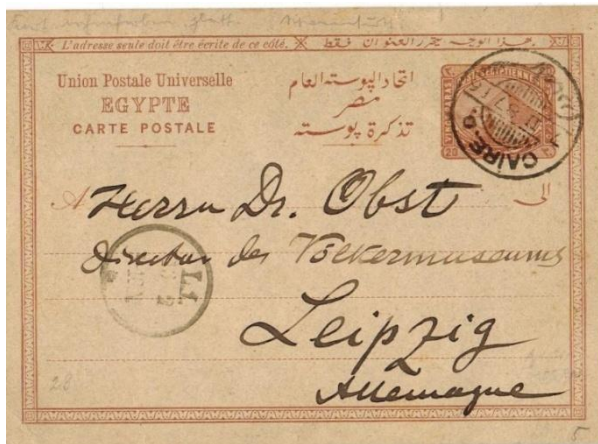 L'adresse seule doit être écrite de ce côté.
هذا الوجه يحرر العنوان فقط
Union Postale Universelle
EGYPTE
CARTE POSTALE
اتحاد البوسته العام
مصر
تذكرة بوسته
CAIRE
A Herrn Dr. Obst
الى
Director des Völkermuseums
Leipzig
Allemagne
28
5